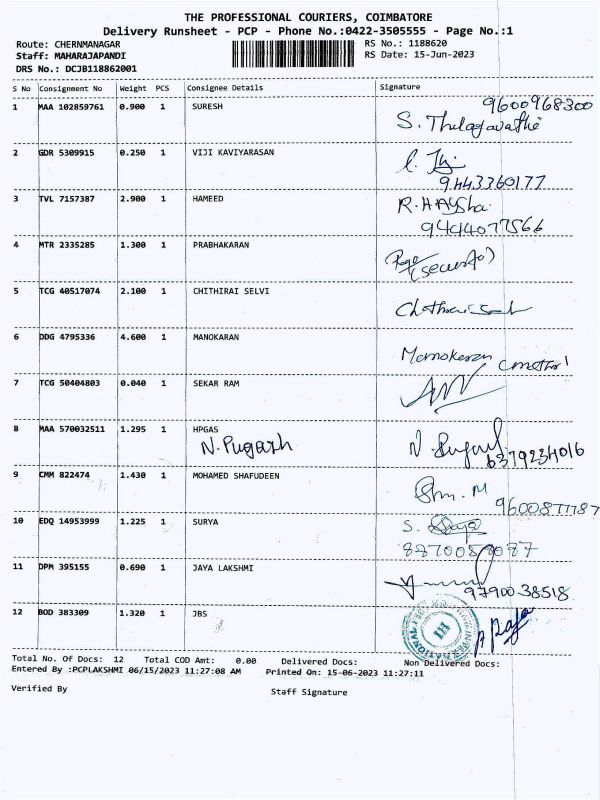 THE PROFESSIONAL COURIERS, COIMBATORE
Delivery Runsheet - PCP - Phone No.:0422-3505555 - Page No.:1
Route: CHERNMANAGAR RS No.: 1188620
Staff: MAHARAJAPANDI RS Date: 15-Jun-2023
DRS No.: DCJB118862001
S No Consignment No Weight PCS Consignee Details Signature
1 MAA 102859761 0.900 1 SURESH 9600968300
S. Thilagavathi
2 GDR 5309915 0.250 1 VIJI KAVIYARASAN
9443360177
3 TVL 7157387 2.900 1 HAMEED R.HAYSha
9444077566
4 MTR 2335285 1.300 1 PRABHAKARAN
5 TCG 40517074 2.100 1 CHITHIRAI SELVI
6 DDG 4795336 4.600 1 MANOKARAN
Manokaran
7 TCG 50404803 0.040 1 SEKAR RAM
8 MAA 570032511 1.295 1 HPGAS
N. Pugazh N.
6379234016
9 CMM 822474 1.430 1 MOHAMED SHAFUDEEN
M
10 EDQ 14953999 1.225 1 SURYA S.
11 DPM 395155 0.690 1 JAYA LAKSHMI
9790038518
12 BOD 383309 1.320 1 JBS
Total No. Of Docs: 12 Total COD Amt: 0.00 Delivered Docs: Non Delivered Docs:
Entered By :PCPLAKSHMI 06/15/2023 11:27:08 AM Printed On: 15-06-2023 11:27:11
Verified By Staff Signature